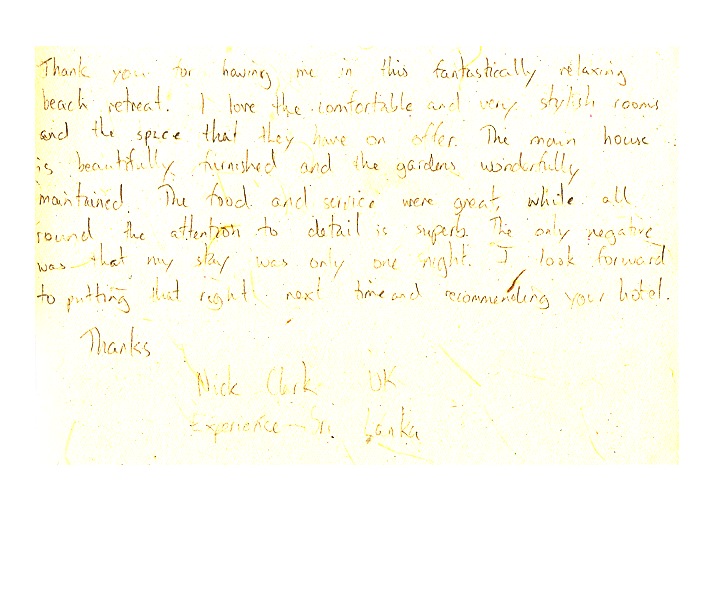 Thank you for having me in this fantastically relaxing
beach retreat. I love the comfortable and very stylish rooms
and the space that they have on offer. The main house
is beautifully furnished and the gardens wonderfully
maintained. The food and service were great, while all
round the attention to detail is superb. The only negative
was that my stay was only one night. I look forward
to putting that right next time and recommending your hotel.
Thanks
Nick Clark UK
Experience Sri Lanka